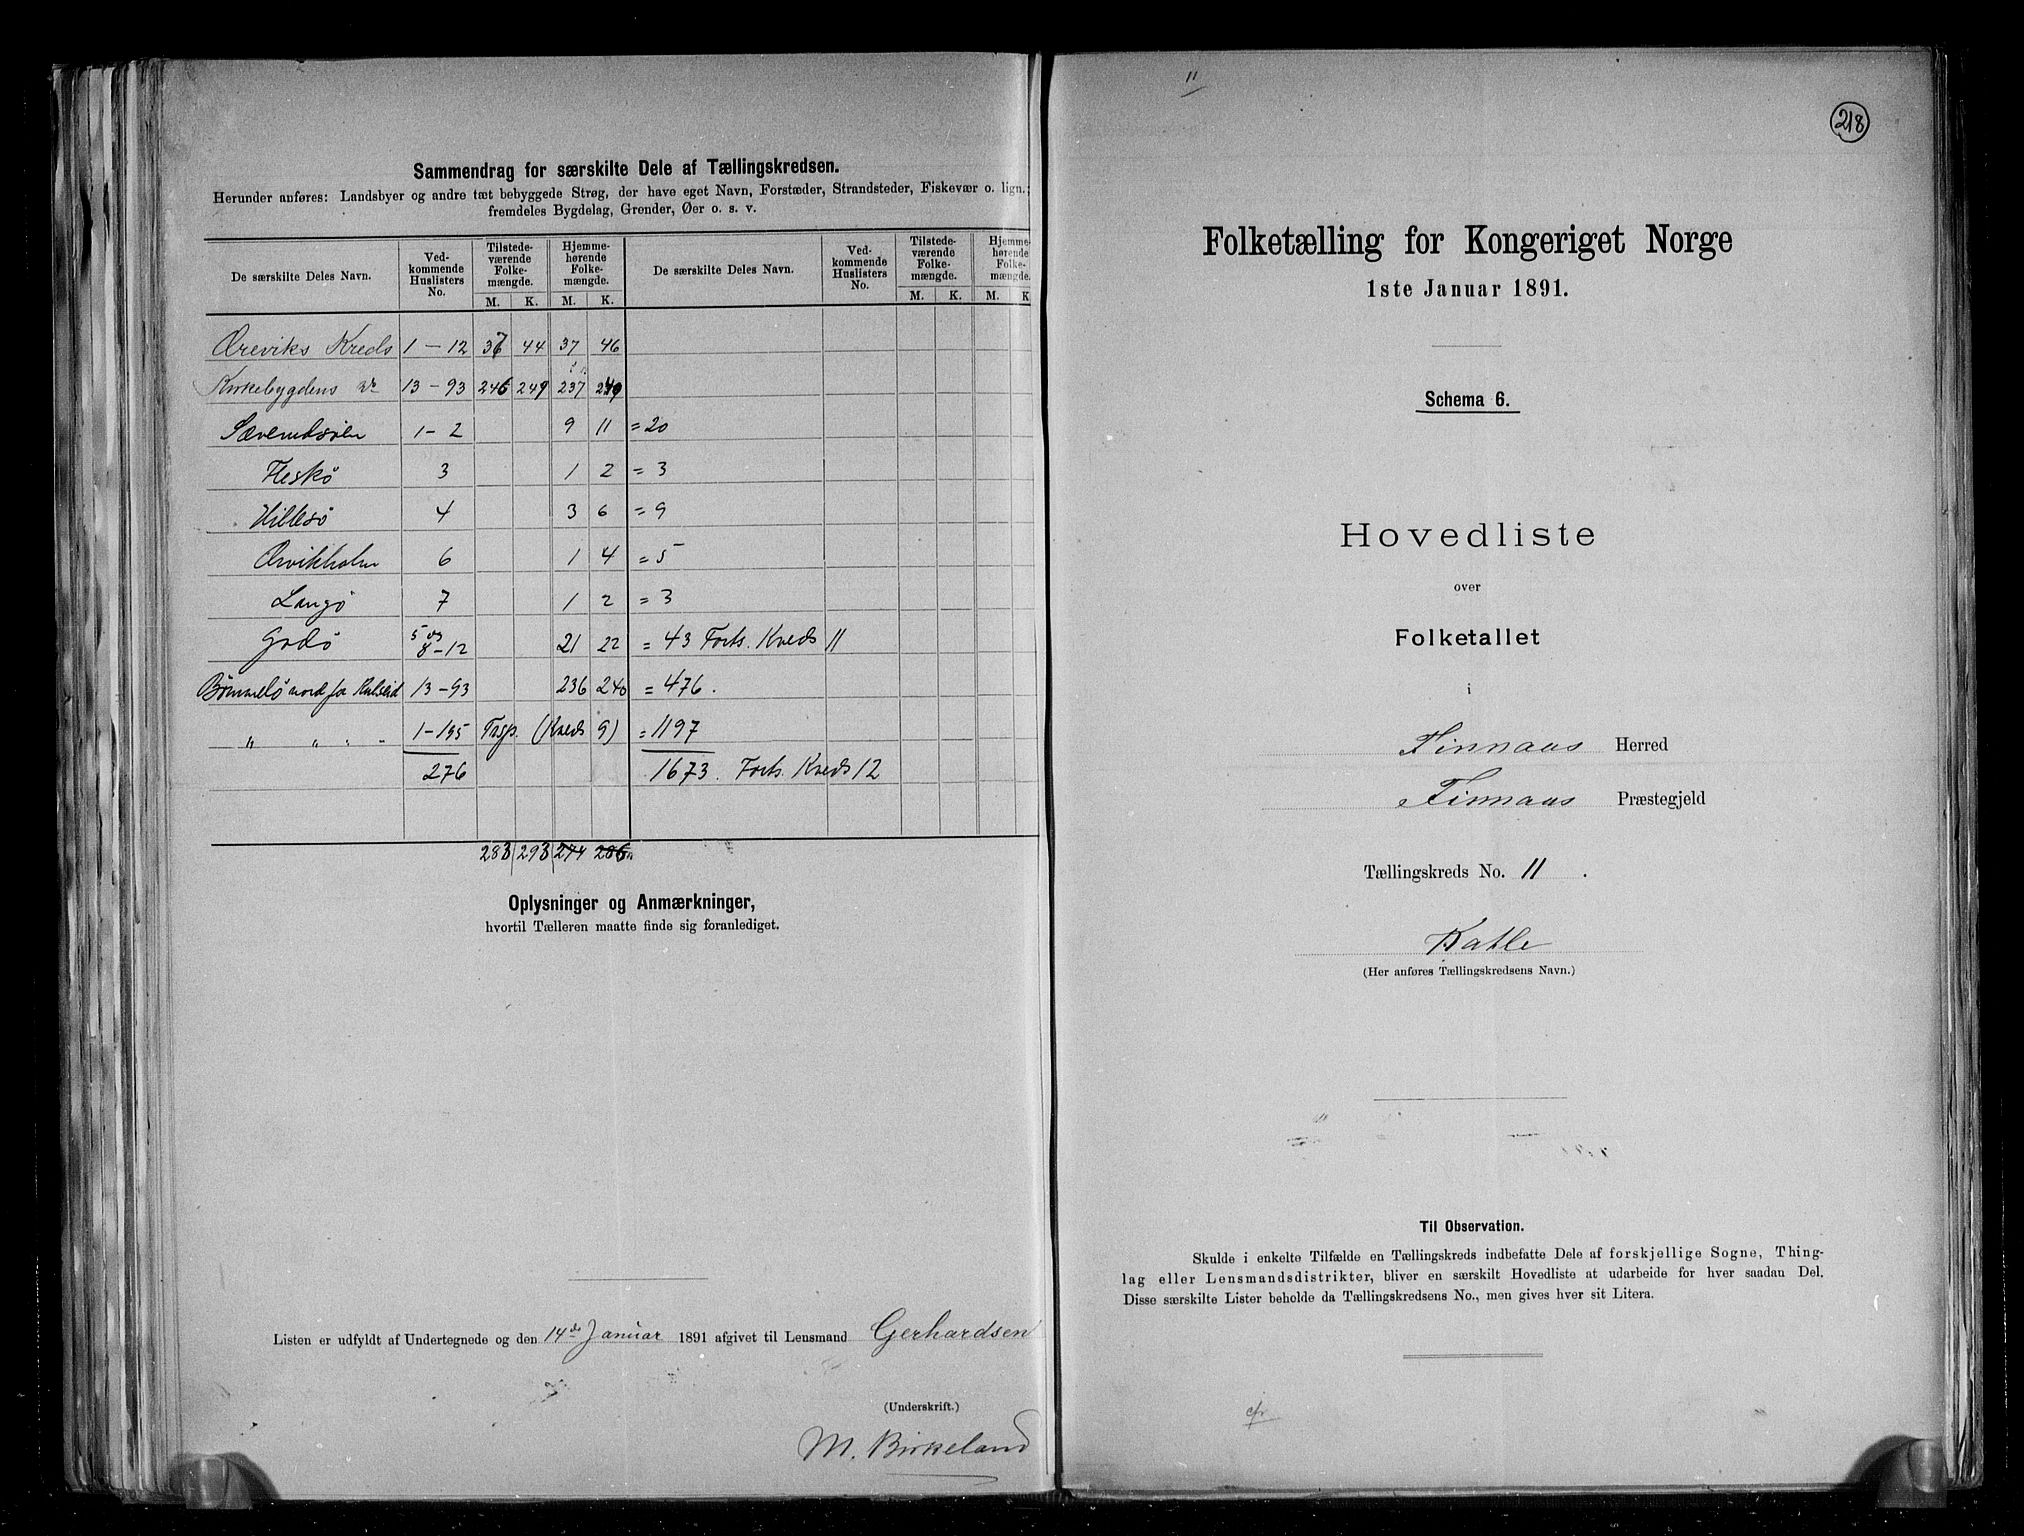 Sammendrag for særskilte Dele af Tællingskredsen.
Herunder anføres: Landsbyer og andre tæt bebyggede Strøg, der have eget Navn, Forstæder, Strandsteder, Fiskevær o. lign.;
fremdeles Bygdelag, Grender, Øer o. s. v.
De særskilte Deles Navn. Ved-kommende Huslisters No. Tilstede-værende Folke-mængde. Hjemme-hørende Folke-mængde. De særskilte Deles Navn. Ved-kommende Huslisters No. Tilstede-værende Folke-mængde. Hjemme-hørende Folke-mængde.
M. K. M. K. M. K. M. K
Øreviks Kreds 1 – 12 37 44 37 46
Kirkebygdens 13 – 93 246 249 237 240
1 – 2 9 11 = 20
Heskø 3 1 2 = 3
Hillesø 4 3 6 = 9
Ørvikholm 6 1 4 = 5
Langø 7 1 2 = 3
Godø 5 og 8 – 12 21 22 = 43 Forts. Kreds 11
Bømmelø nord for 13 – 93 236 240 = 476.
" " " " 1 – 195 Trsp. (Kreds 9) = 1197
276 1673. Forts. Kreds 12
283 293 274 286
Oplysninger og Anmærkninger,
hvortil Tælleren maatte finde sig foranlediget.
Listen er udfyldt af Undertegnede og den 14de Januar 1891 afgivet til Lensmand Gerhardsen
(Underskrift.)
M. Birkeland
11
218
Folketælling for Kongeriget Norge
1ste Januar 1891.
Schema 6.
Hovedliste
over
Folketallet
i
Finnaas Herred
Finnaas Præstegjeld
Tællingskreds No. 11 .
Katle
(Her anføres Tællingskredsens Navn.)
Til Observation.
Skulde i enkelte Tilfælde en Tællingskreds indbefatte Dele af forskjellige Sogne, Thing-
lag eller Lensmandsdistrikter, bliver en særskilt Hovedliste at udarbeide for hver saadan Del.
Disse særskilte Lister beholde da Tællingskredsens No., men gives hver sit Litera.